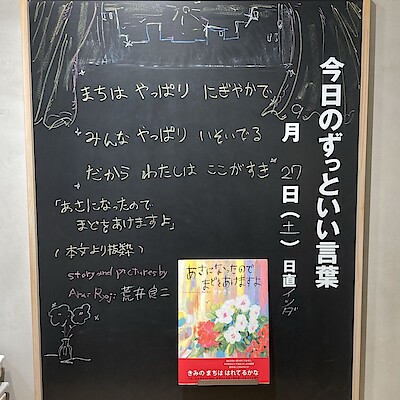 今日のずっといい言葉
9月27日(土) 日直 インダ
"まちは やっぱり にぎやかで
みんな やっぱり いそいでる
だから わたしは ここがすき"
「あさになったので
まどをあけますよ」
(本文より抜粋)
story and pictures by
Arai Ryoji 荒井良二
あさになったので
まどをあけますよ
きみのまちは はれてるかな